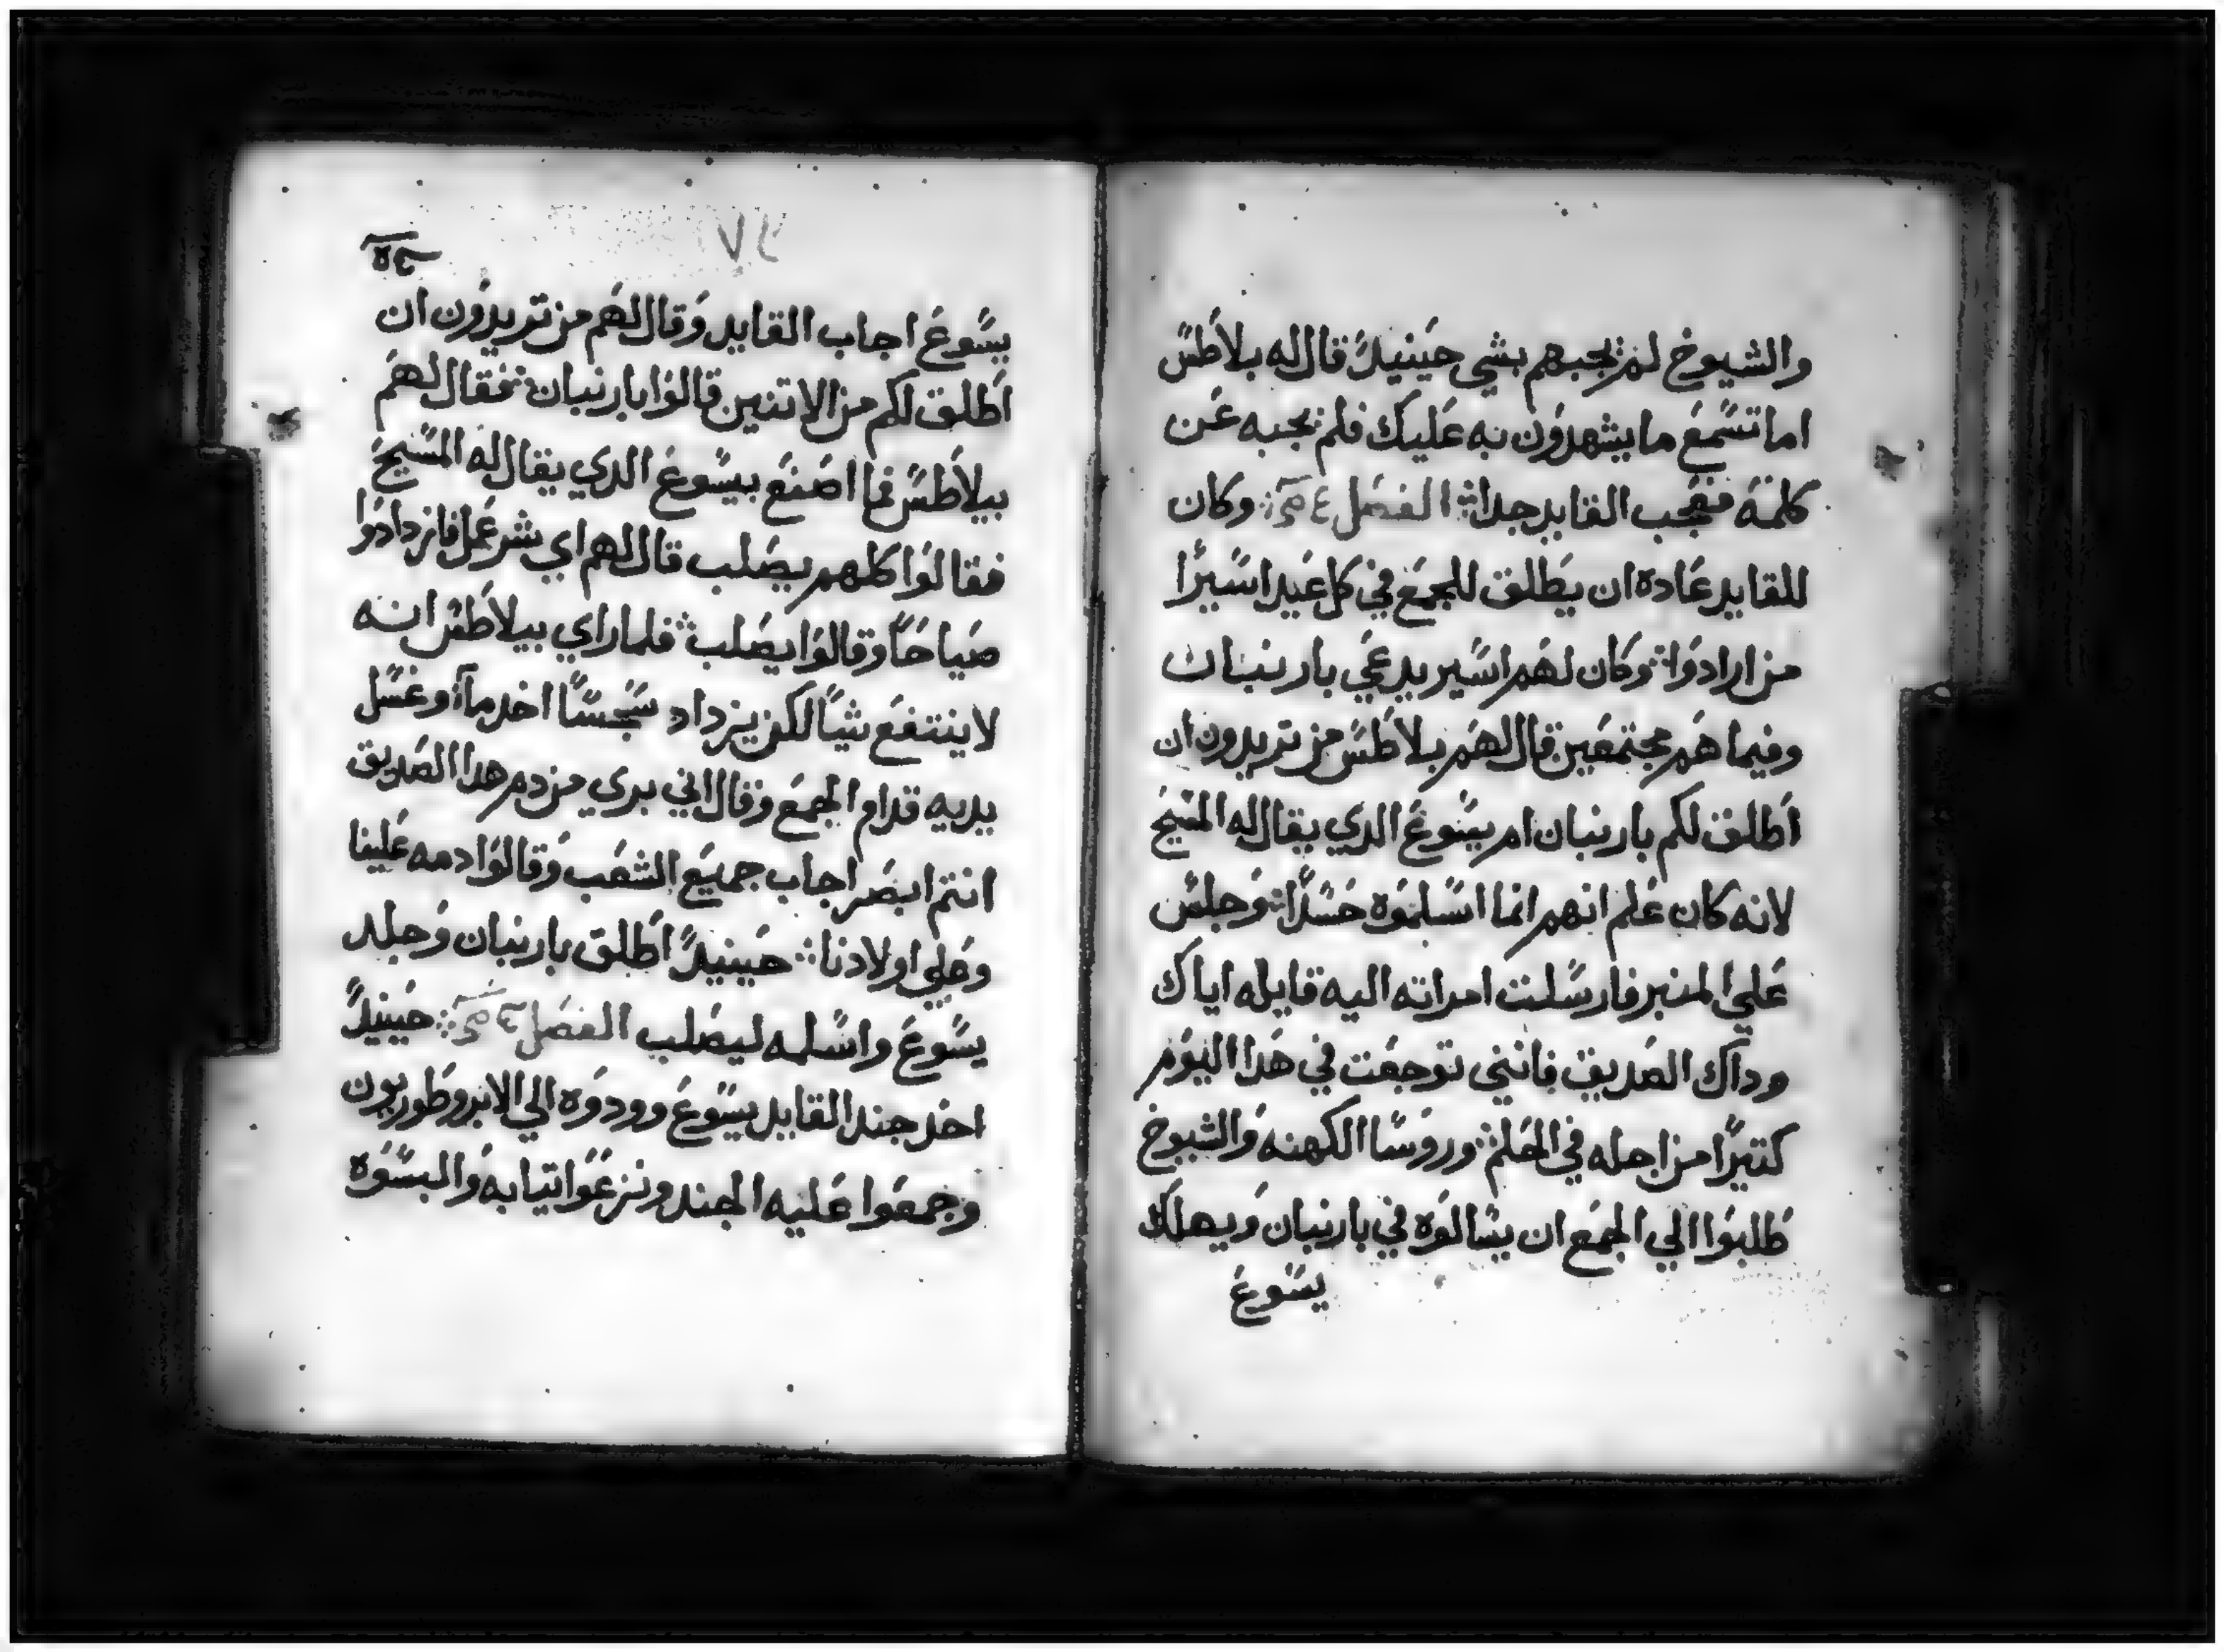 والشيوخ لم يجبهم بشي حينيدً قال له بيلاطس
اما تسمع ما يشهدون به عليك فلم يجبه عن
كلمة فتعجب القايد جدا الفصل وكان
للقايد عاده ان يطلق للجمع في كل عيد اسيرًا
من ارادوا وكان لهم اسير يدعي بارنبان
وفيما هم مجتمعين قال لهم بيلاطس من تريدون ان
اطلق لكم بارنبان ام يسوع الدي يقال له المسيح
لانه كان علم انهم انما اسلموه حسدًا وجلس
علي المنبر فارسلت امراته اليه قايله اياك
وداك الصديق فانني توجعت في هدا اليوم
كتيرًا من اجله في الحلم وروسا الكهنه والشيوخ
طلبوا الي الجمع ان يسالوه في بارنبان ويهلك
يسوع
يسوع اجاب القايد وقال لهم من تريدون ان
اطلق لكم من الاتنين قالوا بارنبان فقال لهم
بيلاطس فما اصنع بيسوع الدي يقال له المسيح
فقالوا كلهم يصلب قال لهم اي شر عمل فازدادوا
صياحًا وقالوا يصلب فلما راي بيلاطس انه
لا ينتفع شيًا لكن يزداد سجسًا اخد مآ وغسل
يديه قدام الجمع وقال اني بري من دم هدا الصديق
انتم ابصر اجاب جميع الشعب وقالوا دمه علينا
وعلي اولادنا حينيدً اطلق بارنبان وجلد
يسوع واسلمه ليصلب الفصل حينيدً
اخد جند القايد يسوع وودوه الي الابروطوريون
وجمعوا عليه الجند ونزعوا تيابه والبسوه